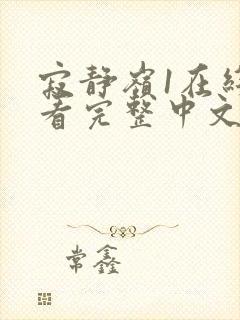 寂静嶺1在
看完整中文
常鑫